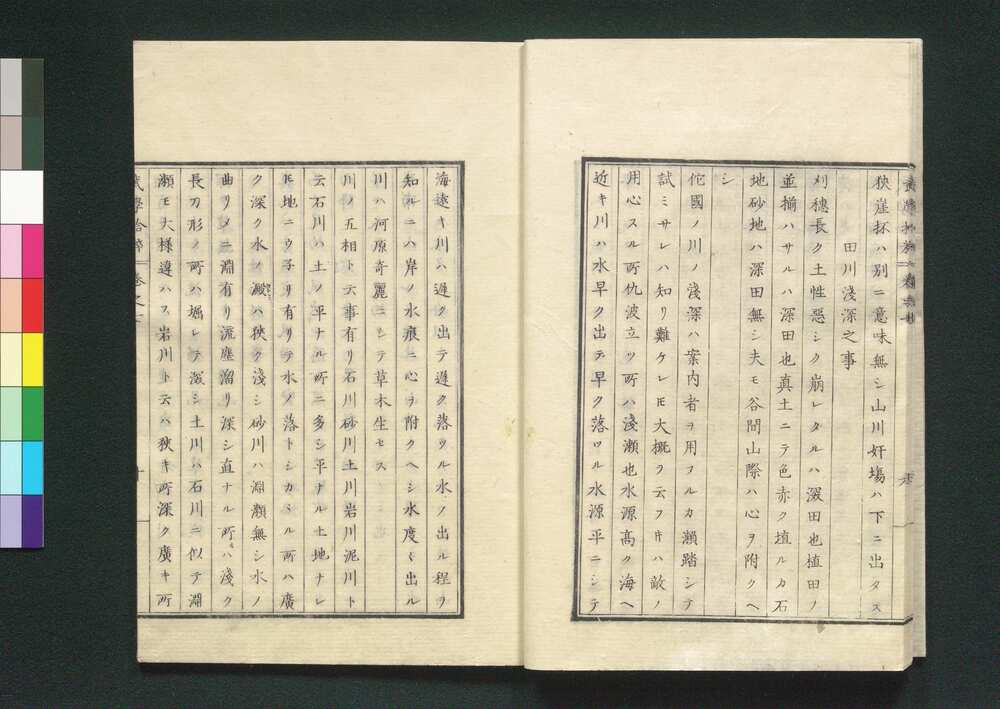 狹崖抔ハ別ニ意味無シ山川奸塲ハ下ニ出タス
田川淺深之事
刈穗長ク土性惡シク崩レタルハ深田也植田ノ
並揃ハサルハ深田也真土ニテ色赤ク埴ルカ石
地砂地ハ深田無シ夫モ谷間山際ハ心ヲ附クヘ
シ
佗國ノ川ノ淺深ハ案内者ヲ用フルカ瀬踏シテ
試ミサレハ知リ難ケレ𪜈大概ヲ云フ𪜈ハ敵ノ
用心スル所仇波立ツ所ハ淺瀬也水源高ク海ヘ
近キ川ハ水早ク出テ早ク落ツル水源平ニシテ
海遠キ川ハ遲ク出テ遲ク落ツル水ノ出ル程ヲ
知ルニハ岸ノ水痕ニ心ヲ附クヘシ水度〱出ル
川ハ河原奇麗ニシテ草木生セス
川ノ五相ト云事有リ石川砂川土川岩川泥川ト
云石川ハ土ノ平ナル所ニ多シ平ナル土地ナレ
𪜈地ニウ子リ有リテ水ノ落トシカヽル所ハ廣
ク深ク水ノ澱ハ狹ク淺シ砂川ハ淵瀬無シ水ノ
曲リメニ淵有リ流塵溜リ深シ直ナル所ハ淺ク
長刀形ノ所ハ堀レテ深シ土川ハ石川ニ似テ淵
瀬モ大様違ハス岩川ト云ハ狹キ所深ク廣キ所